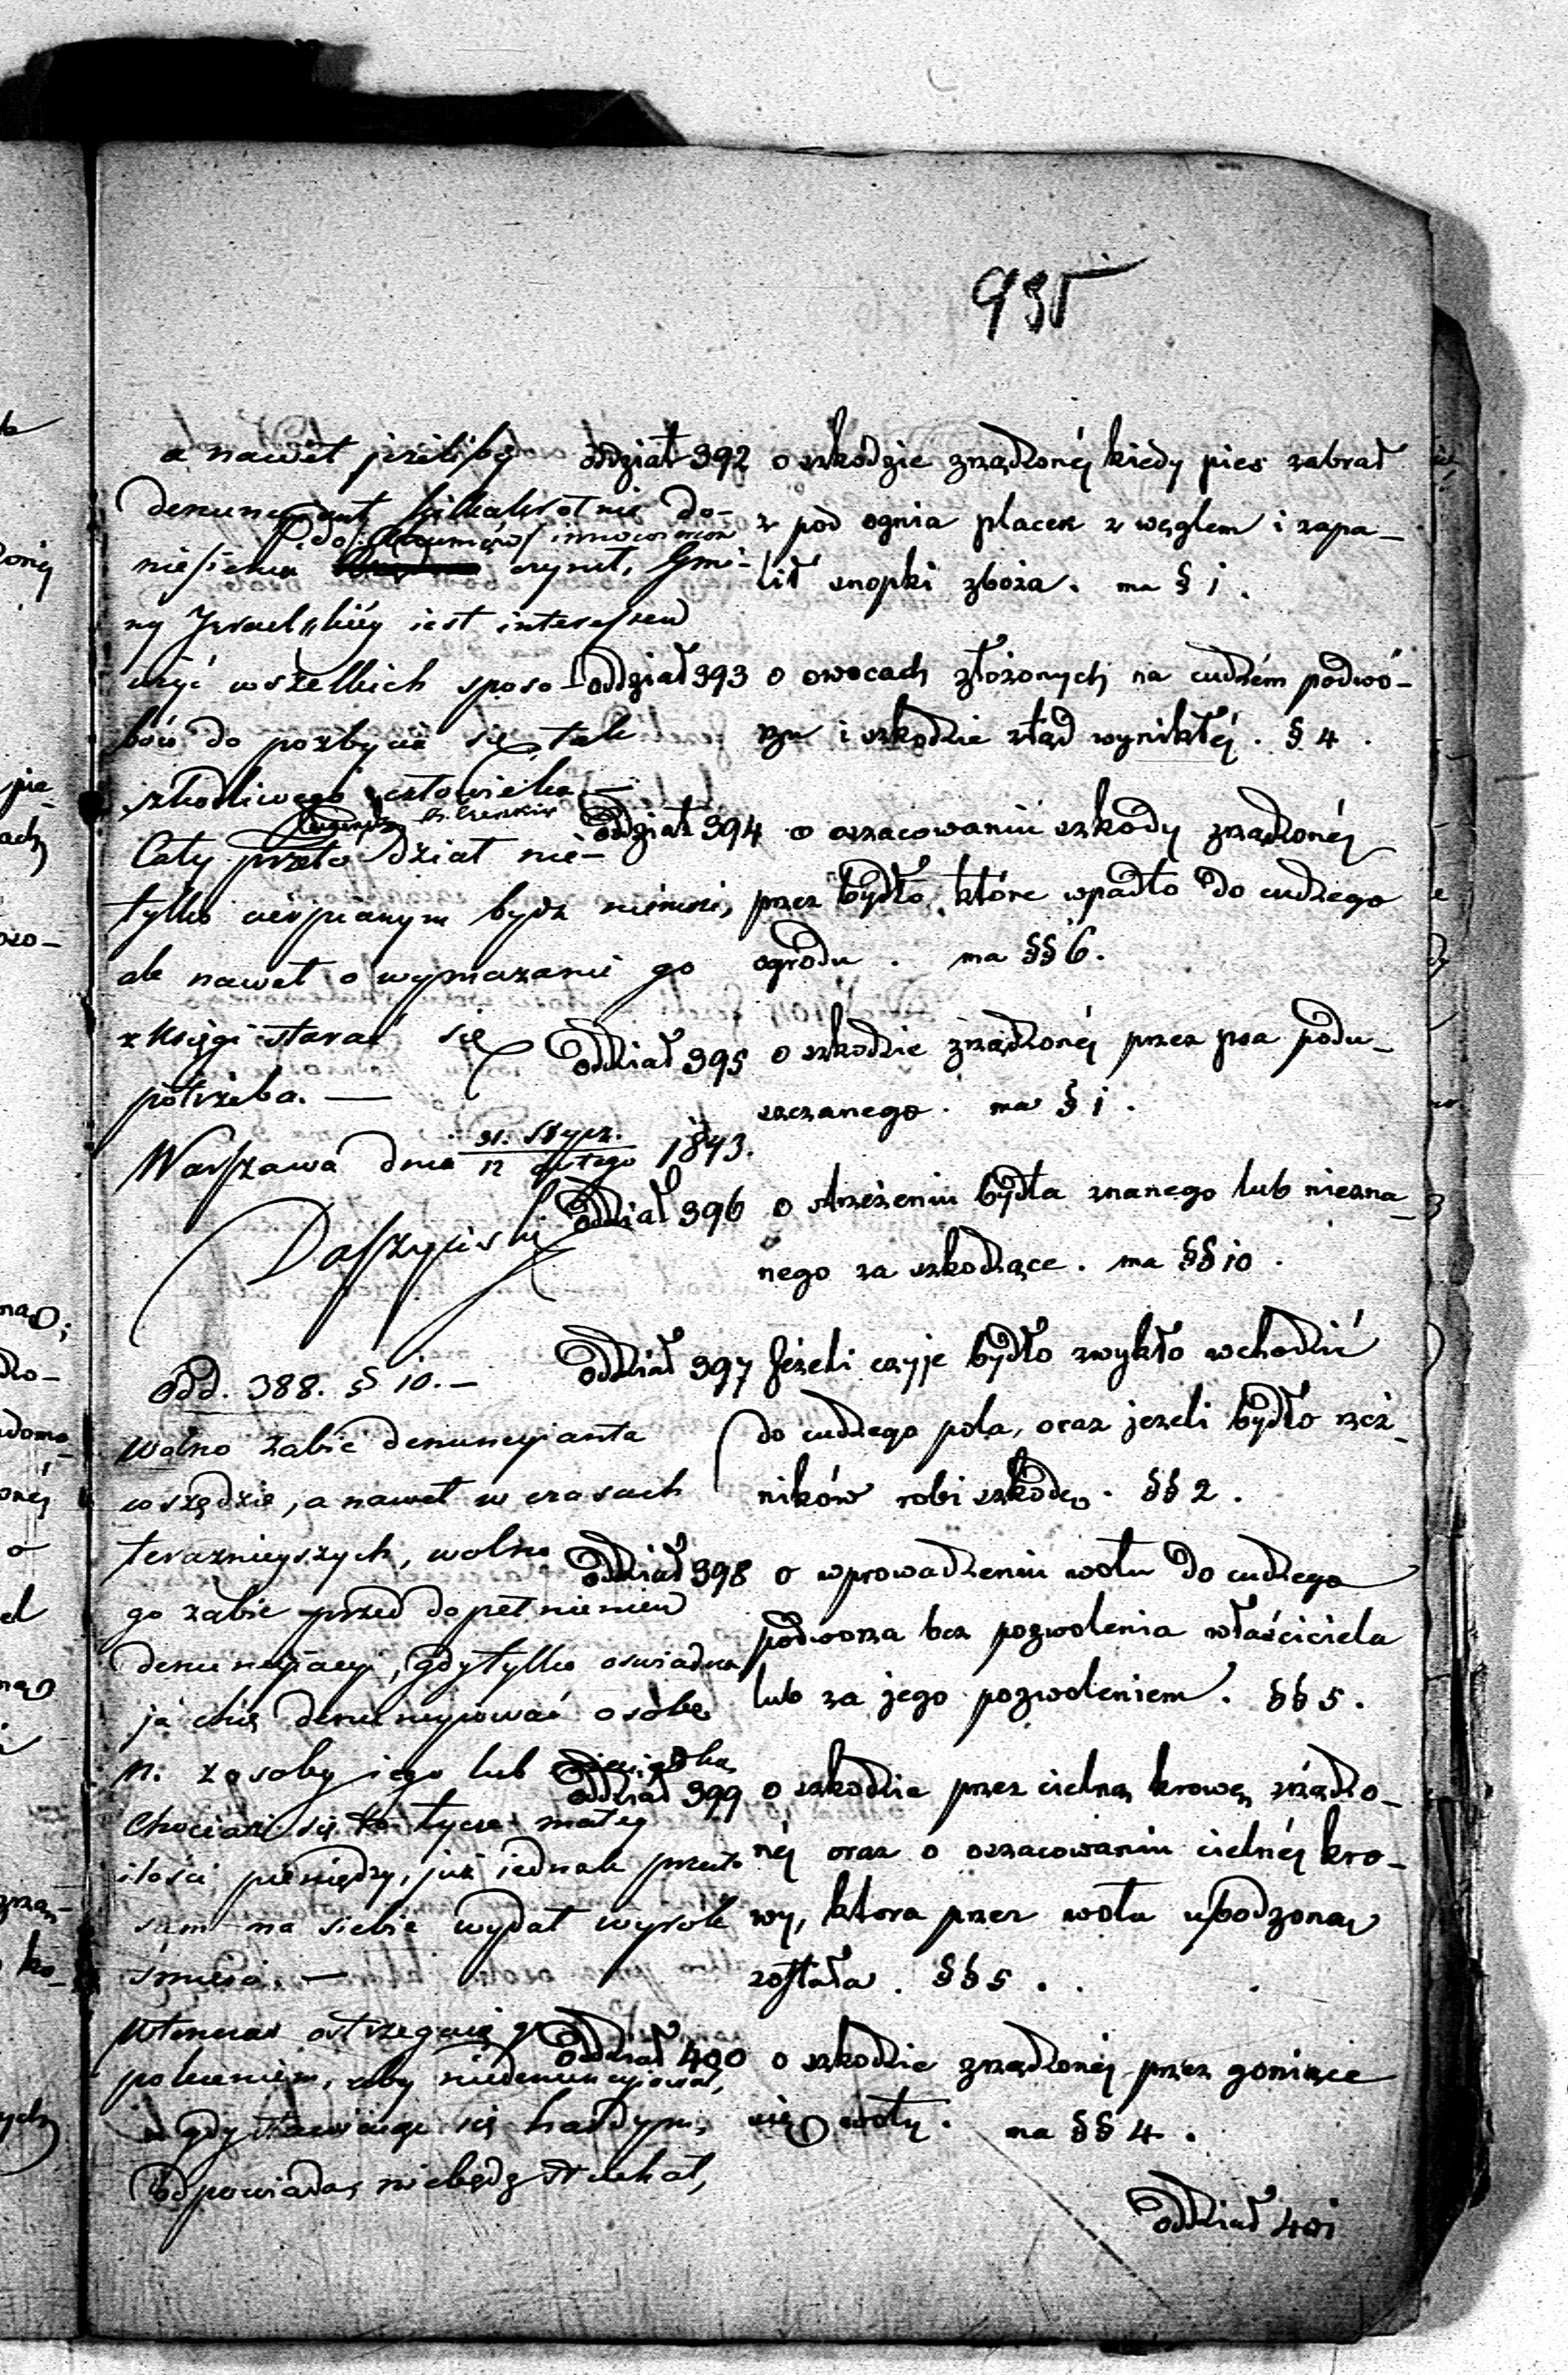 935
a nawet jeżeliby
denuncyant kilkakrotnie do-
do Rozumiéć innowierców
niesienia czynił, Gmi-
ny Izraelskiéy iest interessem
użyć wszelkich sposo-
bów do pozbycia się tak
szkodliwego człowieka. —
Cały przeto dział nie-
tylko cierpianym bydź niemoże,
ale nawet o wymazanie go
z księgi starać się
potrzeba. —
Warszawa dnia 31. Stycz. / 12 Lutego 1843.
Odd. 388. § 10. —
Wolno zabić denuncyanta
wszędzie, a nawet w czasach
teraznieyszych, wolno
go zabić przed dopełnieniem
denuncyacyi, gdy tylko oswiadcza
ja chcę denuncyować osobę
N. z osoby iego lub
chociaż się to tycze małey
ilości pieniędzy, już iednak przeto
sam na siebie wydał wyrok
śmierci. —
Wtenczas ostrzegaią go
poleceniem, aby niedenuncyował,
a gdy stawiaiąc się hardym,
odpowiada, niebędę słuchał,
oddział 392 o szkodzie zrządzonéj kiedy pies zabrał
z pod ognia placek z węglem i zapa-
lił snopki zboża. ma § 1.
oddział 393 o owocach złożonych na cudzém podwó-
rzu i szkodzie ztąd wynikłéj. § 4.
oddział 394 o oszacowaniu szkody zrządzonéj
przez bydło, które wpadło do cudzego
ogrodu. ma §§ 6.
oddział 395 o szkodzie zrządzonéj przez psa podu-
szczanego. ma § 1.
oddział 396 o strzeżeniu bydła znanego lub niezna-
nego za szkodzące. ma §§ 10.
oddział 397 Jeżeli czyje bydło zwykło wchodzić
do cudzego pola, oraz jezeli bydło rzeź-
ników robi szkodę. §§ 2.
oddział 398 o wprowadzeniu wołu do cudzego
podworza bez pozwolenia właściciela
lub za jego pozwoleniem. §§ 5.
oddział 399 o szkodzie przez cielną krowę zrządzo-
néj oraz o oszacowaniu cielnéj kro-
wy, ktora przez wołu ubodzoną
została. §§ 5.
oddział 400 o szkodzie zrządzonéj przez goniące
się woły. ma §§ 4.
oddział 401